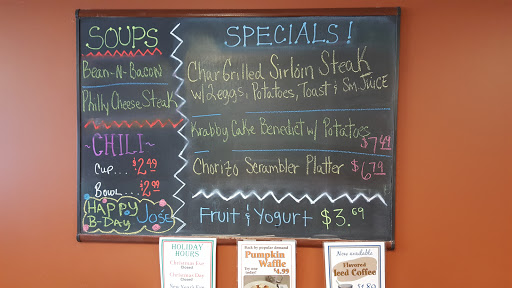 SOUPS
Bean-N-Bacon
Philly Cheese Steak
~CHILI~
Cup... $2.49
Bowl... $2.99
HAPPY
B-DAY Jose
SPECIALS!
Char Grilled Sirloin Steak
w/2 eggs, Potatoes, Toast & Sm. Juice
Krabby Cake Benedict w/ Potatoes
$7.49
Chorizo Scrambler Platter $6.79
Fruit & Yogurt $3.69
HOLIDAY
HOURS
Christmas Eve
Closed
Christmas Day
Closed
New Year's Eve
Back by popular demand
Pumpkin
Waffle
$4.99
Now available
Flavored
Iced Coffee